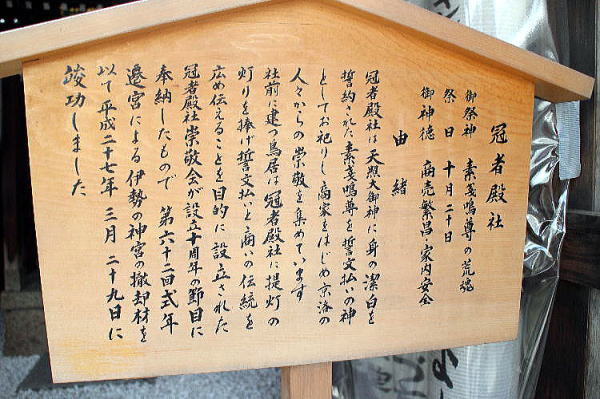 冠者殿社
御祭神　素戔嗚尊の荒魂
祭日　十月二十日
御神徳　商売繁昌・家内安全
由緒
冠者殿社は天照大御神に身の潔白を
誓約された素戔嗚尊を誓文払いの神
としてお祀りし商家をはじめ京洛の
人々からの崇敬を集めています
社前に建つ鳥居は冠者殿社に提灯の
灯りを捧げ誓文払いと商いの伝統を
広め伝えることを目的に設立された
冠者殿社崇敬会が設立十周年の節目に
奉納したもので　第六十二回式年
遷宮による伊勢の神宮の撤却材を
以て平成二十七年三月二十九日に
竣功しました